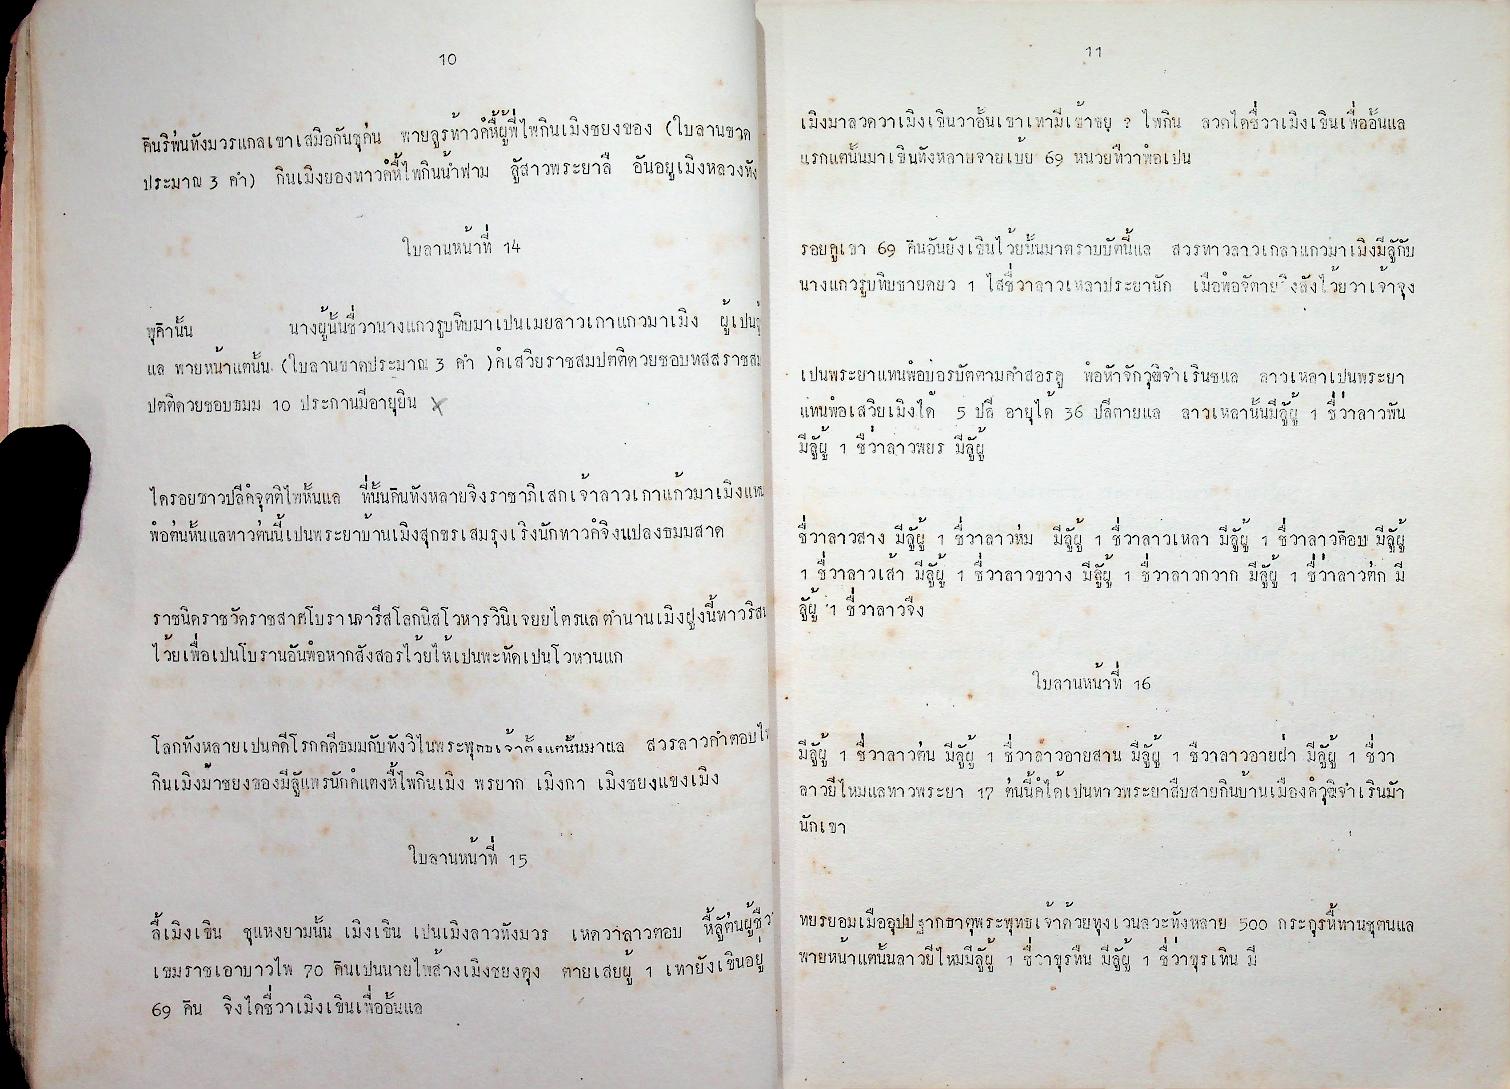 10
คืนริพ่นทังมวรแกลเขาเสมือกันชุคํน พายลูรท้าวคํหื้ผู้พี่ไพกินเมิงชยงของ (ใบลานขาด
ประมาณ 3 คำ) กินเมิงยองทาวคํหื้ไพกินน้ำฟาม ลู้สาวพระยาลื อันอยูเมิงหลวงทัง
ใบลานหน้าที่ 14
พุคิานั้น นางผู้นั้นชื่วานางแกวรูบทิบมาเปนเมยลาวเกาแกวมาเมิง ผู้เปนลู้
แล พายหน้าแตนั้น (ใบลานขาดประมาณ 3 คำ )คํเสวิยราชสมปตติดวยชอบทสสราชสม
ปตติดวยชอบธมม 10 ประกานมีอายุยืน
ไดรอยชาวปลีคํจุตติไพหั้นแล ที่นั้นคืนทังหลายจิงราชาภิเสกเจ้าลาวเกาแก้วมาเมิงแทน
พํอต่นหั้นแลทาวต่นนี้เปนพระยาบ้านเมิงสุกขรเสมรุงเริงนักทาวคํจิงแปลงธมมสาด
ราชนิดราชวัดราชสาศโบรานจารีสโลกนิสโวหารวินิเจยยไตรแล ตำนานเมิงฝูงนี้ทาวริส
ไว้ยเพื่อเปนโบรานอันพํอหากสังสอรไว้ยให้เปนพะทัดเปนโวหานแก
โลกทังหลายเปนคดีโรกคดีธมมกับทังวิไนพระพุดเจ้าตั้งแตนั้นมาแล สวรลาวคำตอบไพ
กินเมิงม้าชยงของมีลู้แพรนักคํแตงหื้ไพกินเมิง พรยาก เมิงกา เมิงชยงแขงเมิง
ใบลานหน้าที่ 15
ลื้เมิงเขิน ชุแหงยามนั้น เมิงเขิน เปนเมิงลาวทังมวร เหดว่าลาวตอบ หื้ลู้ต่นผู้ชื่ว
เขมราชเอาบาวไพ 70 คืนเปนนายไพส้างเมิงชยงตุง ตายเสยผู้ 1 เทายังเขินอยู่
69 คืน จิงไดชื่วาเมิงเขินเพื่ออั้นแล
11
เมิงมาลวดวาเมิงเขินวาอั้นเขาเทามีเข้าชยุ ? ไพกิน ลวดไดชื่วาเมิงเขินเพื่ออั้นแล
แรกแตนั้นมาเขินทังหลายจายเบ้ย 69 หนวยทืวาพํอเปน
รอยคูเขา 69 คืนอันยังเขินไว้ยนั้นมาตราบบัดนี้แล สวรทาวลาวเกลาแกวมาเมิงมีลู้กับ
นางแกวรูบทิบชายดยว 1 ไสชื่วาลาวเหลาประยานัก เมือพํอจัตาย ิงสังไว้ยวาเจ้าจุง
เปนพระยาแทนพํอบํอรบัตตามคำสอรคู พํอหัาจักวุฒิจำเรินชแล ลาวเหลาเปนพระยา
แทนพํอเสวิยเมิงได้ 5 ปลี อายุได้ 36 ปลีตายแล ลาวเหลานั้นมีลู้ผู้ 1 ชื่ว่าลาวพัน
มีลู้ผู้ 1 ชืวาลาวพยร มีลู้ผู้
ชื่วาลาวสาง มีลู้ผู้ 1 ชื่วาลาวห่ม มีลู้ผู้ 1 ชื่วาลาวเหลา มีลู้ผู้ 1 ชื่วาลาวคิอบ มีลู้ผู้
1 ชื่วาลาวเส้า มีลู้ผู้ 1 ชื่วาลาวขวาง มีลู้ผู้ 1 ชื่วาลาวกวาก มีลู้ผู้ 1 ชื่ว่าลาวต่ก มี
ลู้ผู้ 1 ชื่วาลาวจืง
ใบลานหน้าที่ 16
มีลู้ผู้ 1 ชื่วาลาวต่น มีลู้ผู้ 1 ชื่วาลาวอายสาน มีลู้ผู้ 1 ชืวาลาวอายฝ่า มีลู้ผู้ 1 ชื่วา
ลาวยี่ไหมแลทาวพระยา 17 ต่นนี้คํได้เปนทาวพระยาสืบสายกินบ้านเมืองคํวุฒิจำเรินมัา
นักเขา
ทยรยอมเมือ่อุปปฐากธาตุพระพุทธเจ้าด้วยทุงเวนลวะทังหลาย 500 กระกุรหื้ทานชุตนแล
พายหน้าแตนั้นลาวยี่ไหมมีลู้ผู้ 1 ชื่วาขุรทืน มีลู้ผู้ 1 ชื่ว่าขุรเทิน มี